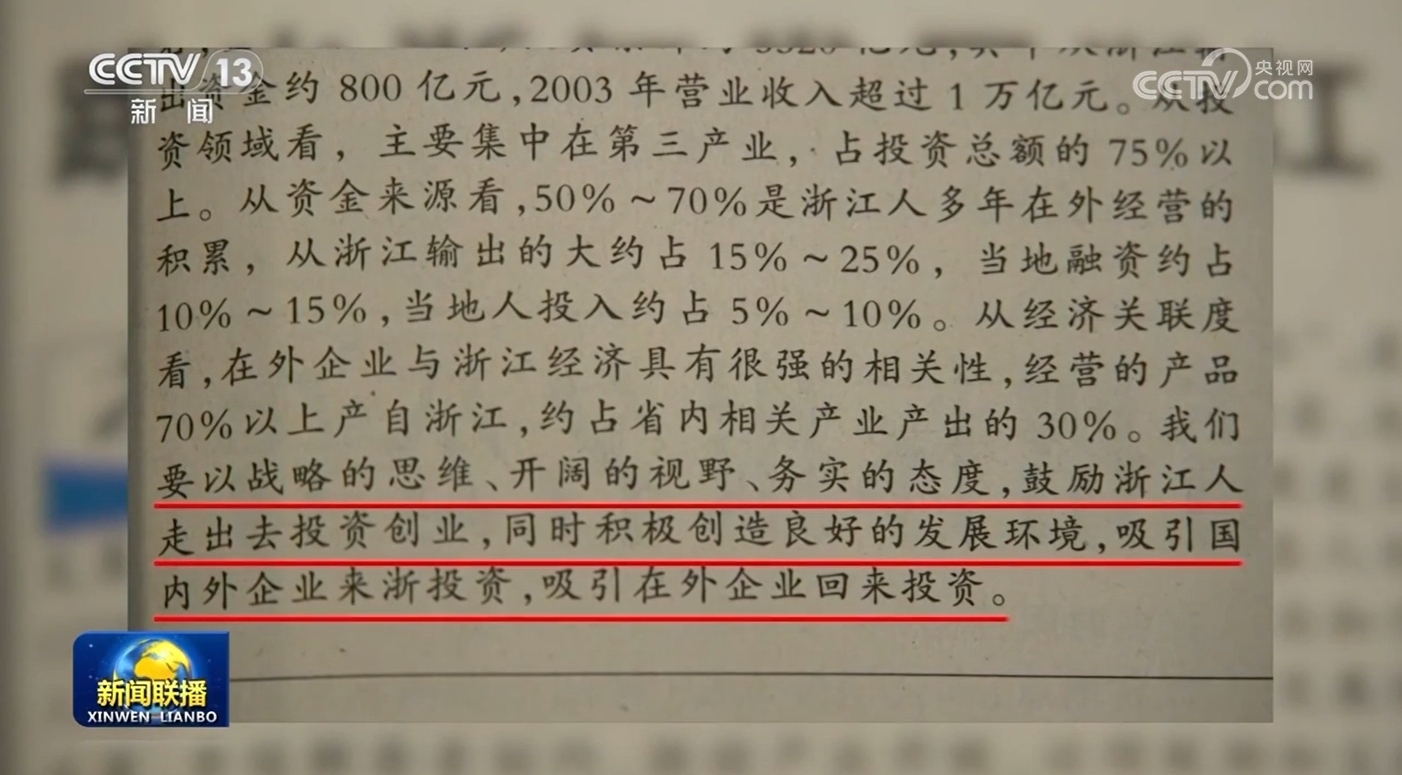 CCTV 13
新闻
央视网
CCTV.com
出资金约 800 亿元,2003 年营业收入超过 1 万亿元。从投
资领域看，主要集中在第三产业，占投资总额的 75%以
上。从资金来源看,50%～70%是浙江人多年在外经营的
积累，从浙江输出的大约占 15%～25%，当地融资约占
10%～15%,当地人投入约占 5%～10%。从经济关联度
看,在外企业与浙江经济具有很强的相关性,经营的产品
70%以上产自浙江,约占省内相关产业产出的 30%。我们
要以战略的思维、开阔的视野、务实的态度,鼓励浙江人
走出去投资创业,同时积极创造良好的发展环境,吸引国
内外企业来浙投资,吸引在外企业回来投资。
新闻联播
XINWEN LIANBO